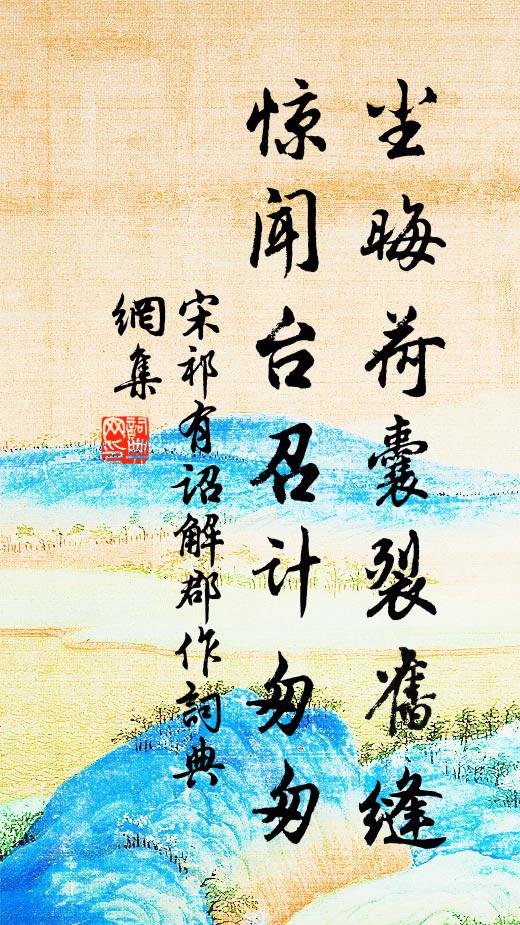 尘晦荷囊裂旧缝
惊闻台召计匆匆
宋祁有诏解郡作詞典
網集